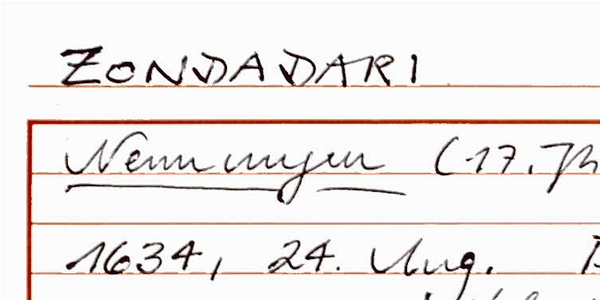 ZONDADARI
Nenningen (17. Jh
1634, 24. Aug.